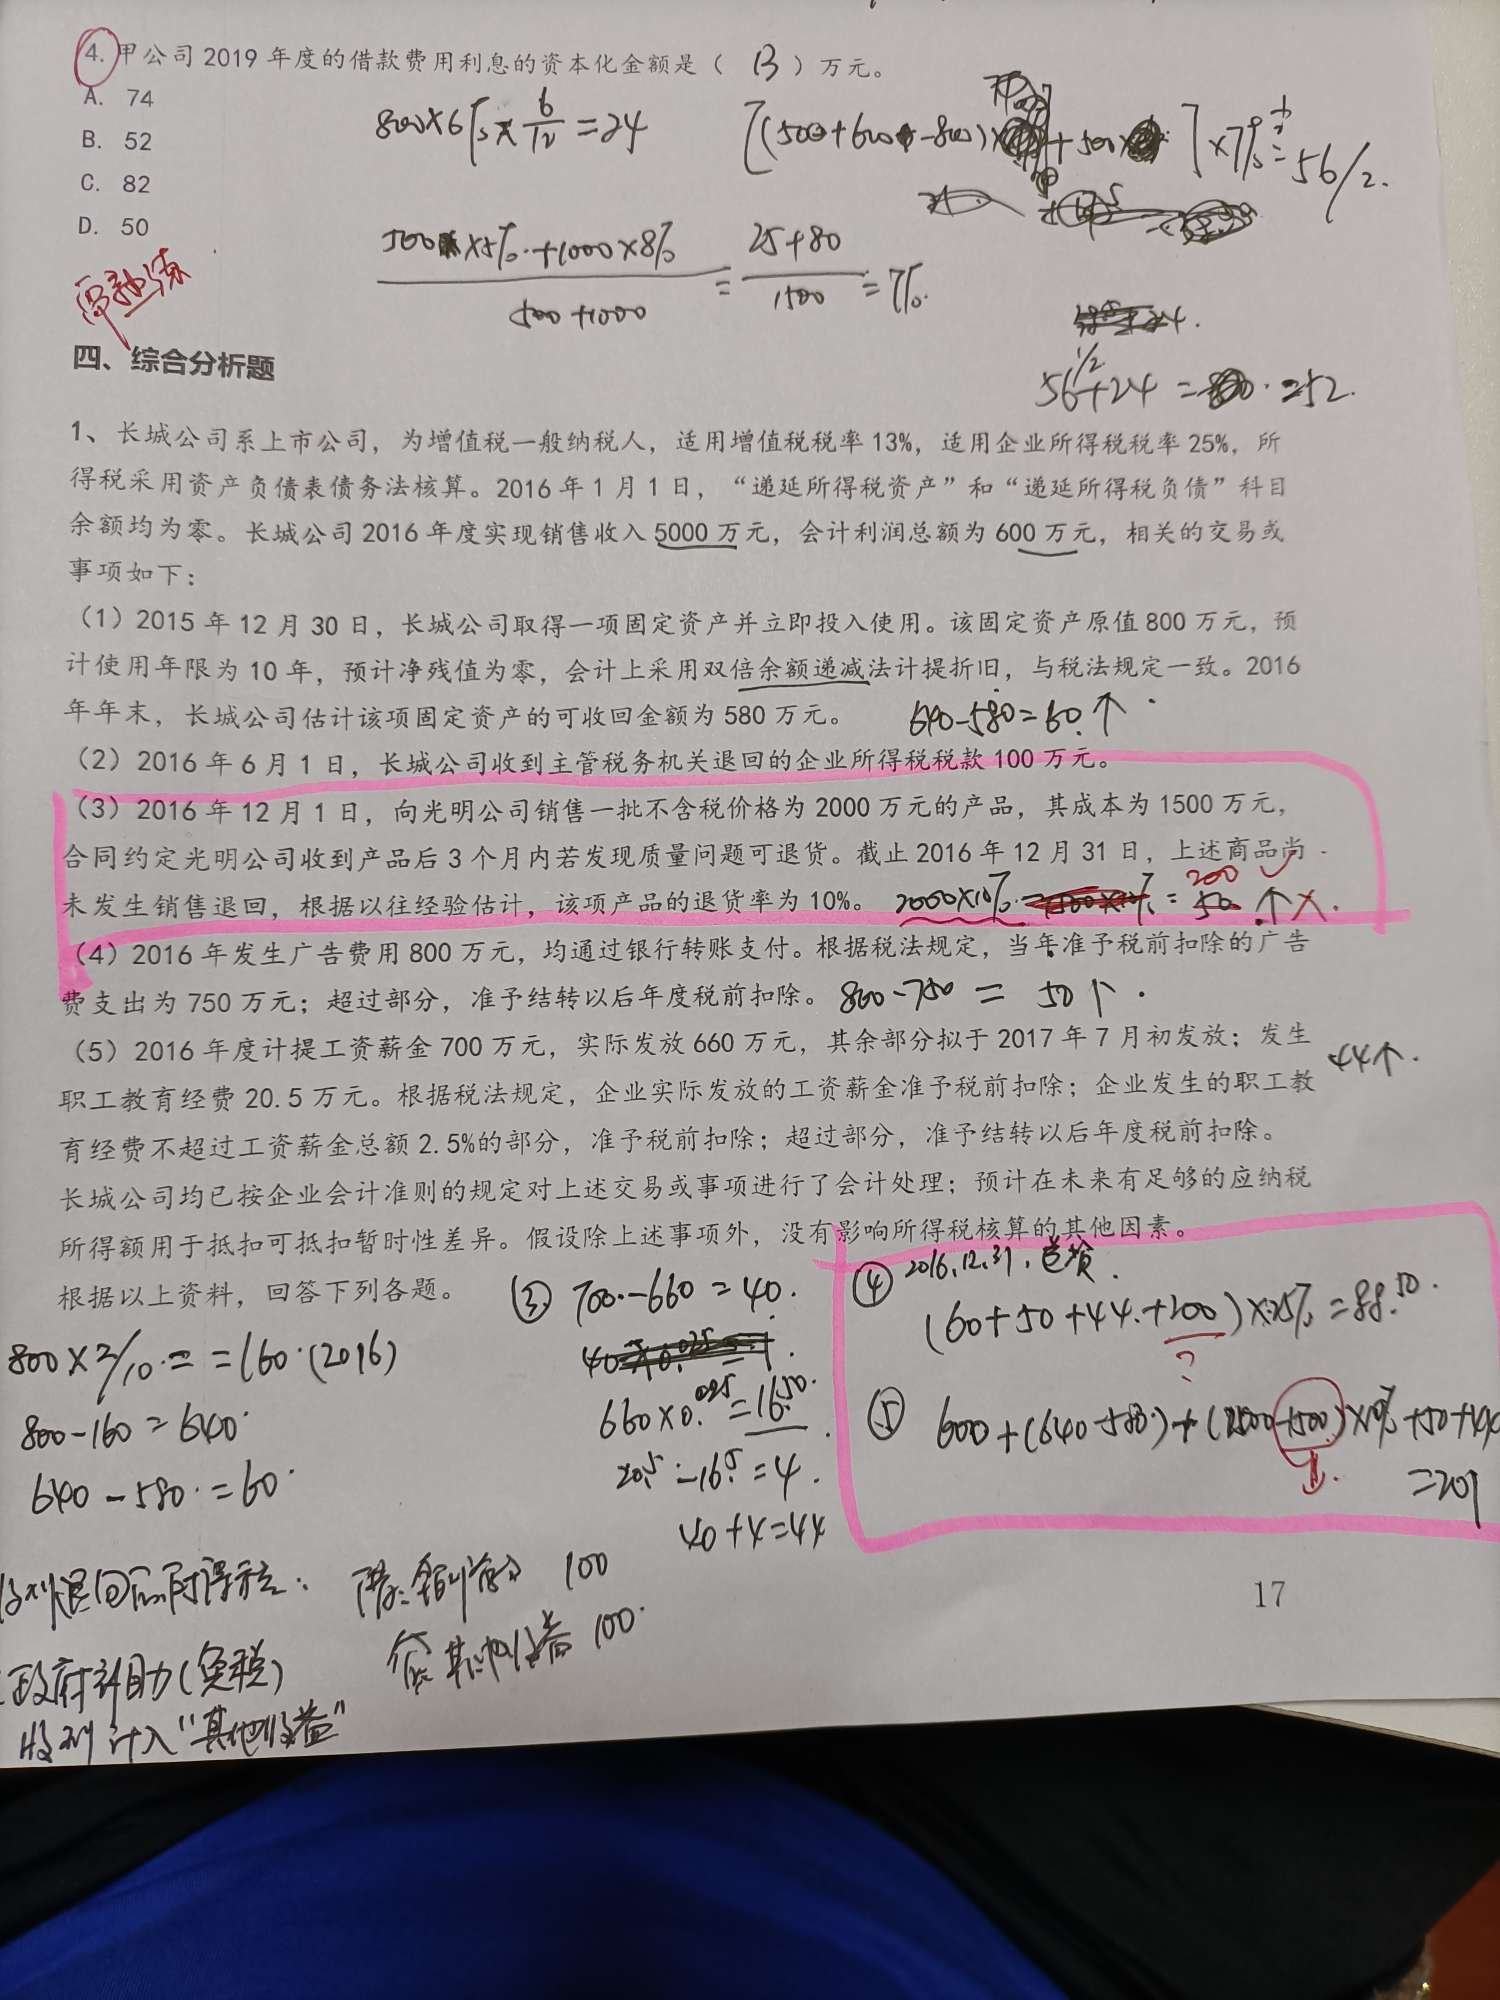 4. 甲公司 2019 年度的借款费用利息的资本化金额是（ B ）万元。
A. 74
B. 52
C. 82
D. 50
800×6%×6/12=24
×7%
=56/2.
500×5%+1000×8%
500+1000
=
25+80
1500
=7%.
56/2+24=
=52.
四、综合分析题
1、长城公司系上市公司，为增值税一般纳税人，适用增值税税率 13%，适用企业所得税税率 25%，所
得税采用资产负债表债务法核算。2016 年 1 月 1 日，“递延所得税资产”和“递延所得税负债”科目
余额均为零。长城公司 2016 年度实现销售收入 5000 万元，会计利润总额为 600 万元，相关的交易或
事项如下：
（1）2015 年 12 月 30 日，长城公司取得一项固定资产并立即投入使用。该固定资产原值 800 万元，预
计使用年限为 10 年，预计净残值为零，会计上采用双倍余额递减法计提折旧，与税法规定一致。2016
年年末，长城公司估计该项固定资产的可收回金额为 580 万元。 640-580=60↑
（2）2016 年 6 月 1 日，长城公司收到主管税务机关退回的企业所得税税款 100 万元。
（3）2016 年 12 月 1 日，向光明公司销售一批不含税价格为 2000 万元的产品，其成本为 1500 万元，
合同约定光明公司收到产品后 3 个月内若发现质量问题可退货。截止 2016 年 12 月 31 日，上述商品尚
未发生销售退回，根据以往经验估计，该项产品的退货率为 10%。 2000×10% = 200 ↑×.
（4）2016 年发生广告费用 800 万元，均通过银行转账支付。根据税法规定，当年准予税前扣除的广告
费支出为 750 万元；超过部分，准予结转以后年度税前扣除。 800-750 = 50↑.
（5）2016 年度计提工资薪金 700 万元，实际发放 660 万元，其余部分拟于 2017 年 7 月初发放；发生
44↑.
职工教育经费 20.5 万元。根据税法规定，企业实际发放的工资薪金准予税前扣除；企业发生的职工教
育经费不超过工资薪金总额 2.5%的部分，准予税前扣除；超过部分，准予结转以后年度税前扣除。
长城公司均已按企业会计准则的规定对上述交易或事项进行了会计处理；预计在未来有足够的应纳税
所得额用于抵扣可抵扣暂时性差异。假设除上述事项外，没有影响所得税核算的其他因素。
根据以上资料，回答下列各题。
③ 700-660=40.
660×0.025=16.50.
20.5-16.5=4.
40+4=44
④ 2016.12.31.
(60+50+44+200)×25%=88.50.
?
⑤ 600+(640-580)+
×10%+50+44
800×2/10= =160.(2016)
800-160=640.
640-580=60.
借: 100
贷: 其他收益 100.
政府补助(免税)
收到计入“其他收益”
17